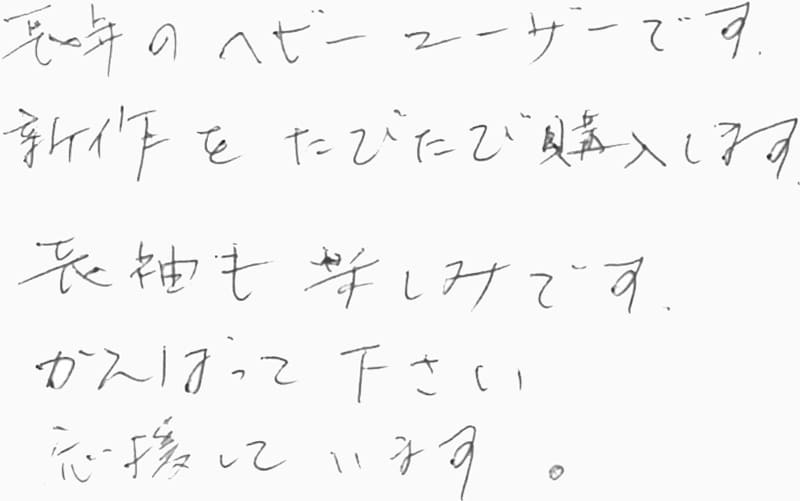 長年のヘビーユーザーです.
新作をたびたび購入します.
長袖も楽しみです.
がんばって下さい
応援しています。